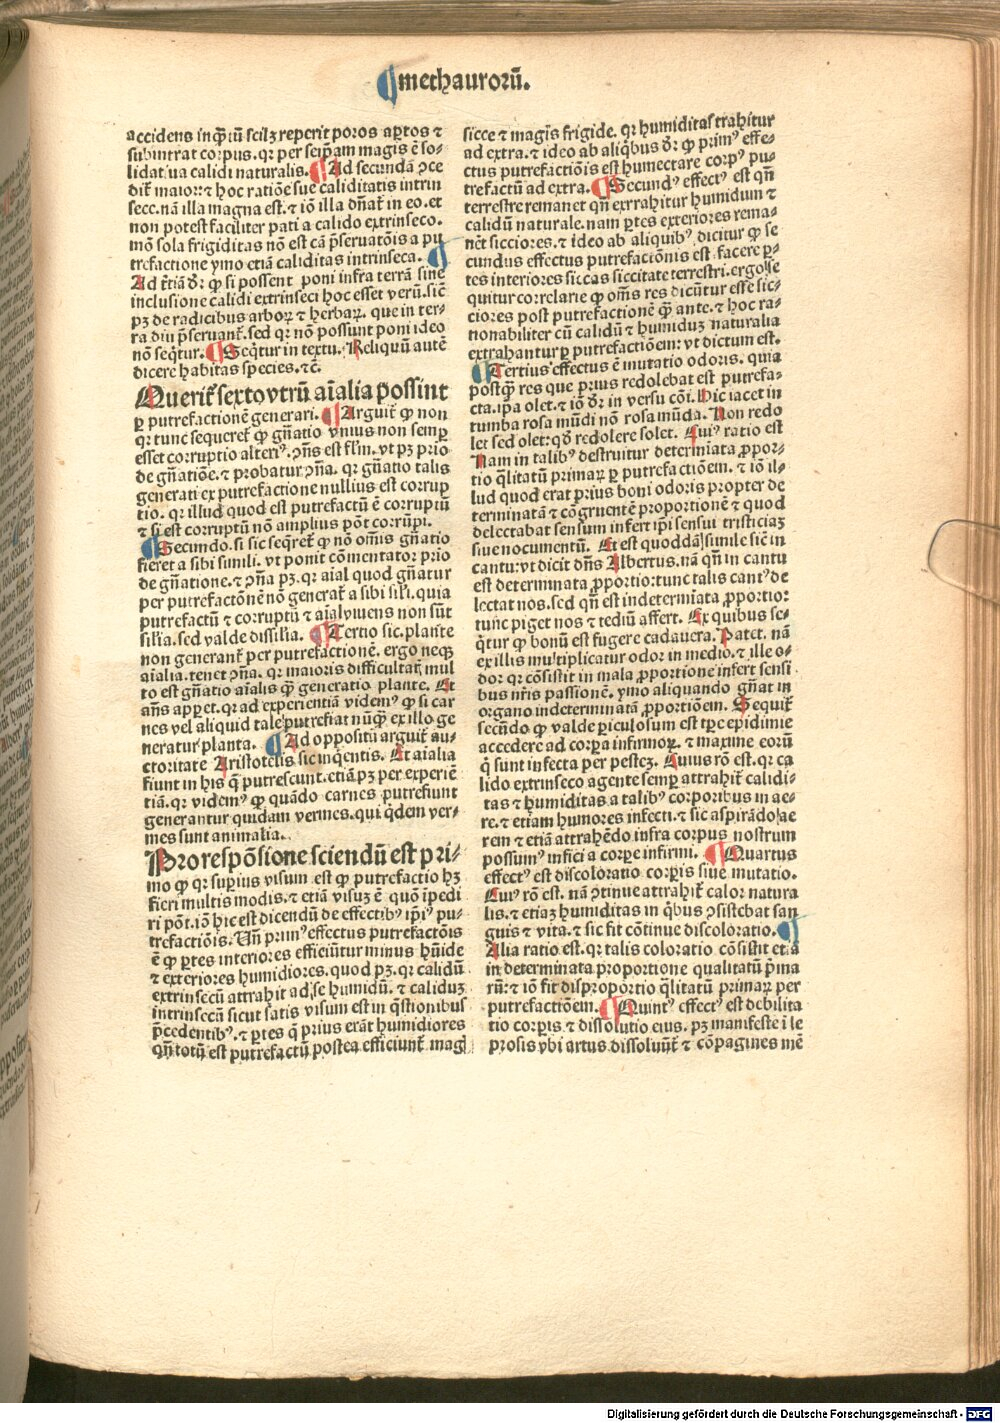 ¶mechauroꝝ.
accidens inq̃ꝫtũ scilꝫ reperit poros aptos ⁊
subintrat corpus. qꝛ per seip̃am magis ẽ so-
lidat sua calidi naturalis. ¶ Ad secundã ꝯce
dit᷑ maior: ⁊ hoc ratiõe sue caliditatis intrin
sece. nã illa magna est. ⁊ iõ illa dñat᷑ in eo. et
non potest faciliter pati a calido extrinseco.
mõ sola frigiditas nõ est cã p̃seruatõis a pu
trefactione ymo etiã caliditas intrinseca. ¶
Ad t̃tiã dr̃ ꝙ si possent poni infra terrã sine
inclusione calidi extrinseci hoc esset verũ. sic̃
pꝫ de radicibus arboꝝ ⁊ herbaꝝ. que in ter-
ra diu p̃seruant᷑. sed qꝛ nõ possunt poni ideo
nõ seq̃tur. ¶ Seq̃tur in textu. Reliquũ autẽ
dicere habitas species. ⁊c̃.
Querit᷑ sexto vtrũ aĩalia possint
ꝑ putrefactionẽ generari. ¶ Arguit᷑ ꝙ non
qꝛ tunc sequeret᷑ ꝙ gñatio vnius non semꝑ
esset corruptio alteriꝰ. ꝯñs est fl̃m. vt pꝫ prio
de gñatiõe. ⁊ probatur ꝯña. qꝛ gñatio talis
generati ex putrefactione nullius est corrup
tio. qꝛ illud quod est putrefactũ ẽ corruptũ
⁊ si est corruptũ nõ amplius põt corrũpi.
¶ Secundo. si sic seq̃ret᷑ ꝙ nõ om̃is gñatio
fieret a sibi simili. vt ponit cõmentator prio
de gñatione. ⁊ ꝯña pꝫ. qꝛ aĩal quod gñatur
per putrefactõnẽ nõ generat᷑ a sibi sil̃i. quia
putrefactũ ⁊ corruptũ ⁊ aĩal viuens non sũt
sil̃ia. sed valde dissil̃ia. ¶ Tertio sic. plante
non generant᷑ per putrefactionẽ. ergo neqꝫ
aĩalia. tenet ꝯña. qꝛ maioris difficultat᷑ mul
to est gñatio aĩalis q̃ꝫ generatio plante. Et
añs apꝑet. qꝛ ad experientiã videmꝰ ꝙ si car
nes vel aliquid tale putrefiat nũq̃ꝫ ex illo ge
neratur planta. ¶ Ad oppositũ arguit᷑ au-
ctoritate Aristotelis sic inq̃entis. Et aĩalia
fiunt in his q̃ putrescunt. etiã pꝫ per experiẽ
tiã. qꝛ videmꝰ ꝙ quãdo carnes putrefiunt
generantur quidam vermes. qui q̃dem ver-
mes sunt animalia.
Pro respõsione sciendũ est pri-
mo ꝙ qꝛ suꝑius visum est ꝙ putrefactio hꝫ
fieri multis modis. ⁊ etiã visuꝫ ẽ quõ ĩpedi
ri põt. iõ hic est dicendũ de effectibꝰ ip̃iꝰ pu-
trefactiõis. Vñ primꝰ effectus putrefactõis
ẽ ꝙ ꝑtes interiores efficiũtur minus hũide
⁊ exteriores humidiores. quod pꝫ. qꝛ calidũ
extrinsecũ attrahit ad se humidũ. ⁊ caliduꝫ
intrinsecũ sicut satis visum est in q̃stionibus
p̃cedentibꝰ. ⁊ ꝑtes q̃ prius erãt humidiores
qñ totũ est putrefactũ postea efficiunt᷑ magꝭ
sicce ⁊ magis frigide. qꝛ humiditas trahitur
ad extra. ⁊ ideo ab aliq̃bus dr̃ ꝙ primꝰ effe-
ctus putrefactiõis est humectare corpꝰ pu-
trefactũ ad extra. ¶ Secundꝰ effectꝰ est qñ
terrestre remanet qñ extrahitur humidum ⁊
calidũ naturale. nam ꝑtes exteriores rema-
nẽt sicciores. ⁊ ideo ab aliquibꝰ dicitur ꝙ se
cundus effectus putrefactiõnis est facere ꝑ-
tes interiores siccas siccitate terrestri. ergo se
quitur correlarie ꝙ om̃s res dicũtur esse sic-
ciores post putrefactionẽ q̃ꝫ ante. ⁊ hoc ra-
tionabiliter cũ calidũ ⁊ humiduꝫ naturalia
extrahantur ꝑ putrefactiõem: vt dictum est.
¶ Tertius effectus ẽ mutatio odoris. quia
postq̃ꝫ res que prius redolebat est putrefa-
cta. ip̃a olet. ⁊ iõ dr̃ in versu cõi. Hic iacet in
tumba rosa mũdi nõ rosa mũda. Non redo
let sed olet: qð redolere solet. Cuiꝰ ratio est
Nam in talibꝰ destruitur determiata ꝓpor-
tio q̃litatũ primaꝝ ꝑ putrefactiõem. ⁊ iõ il-
lud quod erat prius boni odoris propter de
terminatã ⁊ cõgruentẽ proportionẽ ⁊ quod
delectabat sensum infert ip̃i sensui tristiciaꝫ
siue nocumentũ. Et est quoddã simile sic̃ in
cantu: vt dicit dñs Albertus. nã qñ in cantu
est determinata ꝓportio: tunc talis cantꝰ de
lectat nos. sed qñ est indetermiata ꝓportio:
tunc piget nos ⁊ tediũ affert. Ex quibus se-
q̃tur ꝙ bonũ est fugere cadauera. Patet. nã
ex illis multiplicatur odor in medio. ⁊ ille o-
dor qꝛ cõsistit in mala ꝓportione infert sensi
bus nr̃is passionẽ. ymo aliquando gñat in
organo indeterminatã ꝓportiõem. Sequit᷑
secũdo ꝙ valde periculosum est tp̃e epidimie
accedere ad corꝑa infirmoꝝ. ⁊ maxime eorũ
q̃ sunt infecta per pesteꝫ. Cuius rõ est. qꝛ ca
lido extrinseco agente semꝑ attrahit᷑ calidi-
tas ⁊ humiditas a talibꝰ corporibus in ae-
re. ⁊ etiam humores infecti. ⁊ sic aspirãdo ae
rem ⁊ etiã attrahẽdo infra corpus nostrum
possumꝰ infici a corꝑe infirmi. ¶ Quartus
effectꝰ est discoloratio corꝑis siue mutatio.
Cuiꝰ rõ est. nã ꝯtinue attrahit᷑ calor natura
lis. ⁊ etiaꝫ humiditas in q̃bus ꝯsistebat san
guis ⁊ vita. ⁊ sic fit cõtinue discoloratio. ¶
Alia ratio est. qꝛ talis coloratio cõsistit et̃
in determinata proportione qualitatũ p̃ma
rũ: ⁊ iõ fit disproportio q̃litatũ primaꝝ per
putrefactiõem. ¶ Quintꝰ effectꝰ est debilita
tio corꝑis ⁊ dissolutio eius. pꝫ manifeste ĩ le
prosis vbi artus dissoluũt᷑ ⁊ cõpagines mẽ
Digitalisierung gefördert durch die Deutsche Forschungsgemeinschaft - DFG